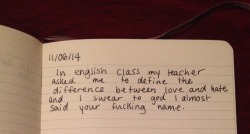 11/06/14
In english class my teacher
asked me to define the
difference between love and hate
and I swear to god I almost
said your fucking name.